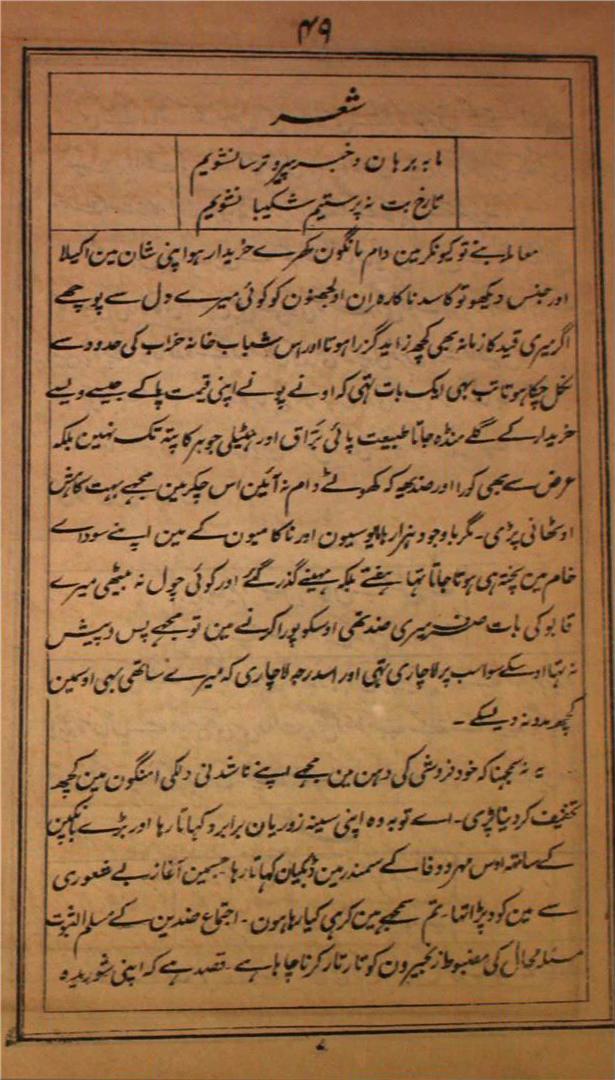 ۴۹
شعر
ما به برهان و خبر پیرو ترسا نشویم
تا رخ بت نه پرستیم شکیبا نشویم
معاملہ بنے تو کیونکر مین دام مانگون کھرے خریدار ہو اپنی شان مین اکیلا
اور جنس دیکھو تو کاسد ناکارہ ان اولجھنون کو کوئی میرے دل سے پوچھے
اگر میری قید کا زمانہ بھی کچھ زاید گزرا ہوتا اور اس شباب خانہ خراب کی حدود سے
نکل چکا ہوتا تب بھی ایک بات تھی کہ اونے پونے اپنی قیمت پا کے جیسے ویسے
خریدار کے گلے منڈہ جاتا طبیعت پائی براق اور ہٹیلی جوہر کا پتہ تک نہین بلکہ
عرض سے بھی کورا اور ضد یہ کہ کھوٹے دام نہ آئین اس چکر مین مجھے بہت کاہش
اوٹھانی پڑی۔ مگر باوجود ہزارہا مایوسیون اور ناکامیون کے مین اپنے سوداے
خام مین پختہ ہی ہوتا جاتا تہا ہفتے بلکہ مہینے گذر گئے اور کوئی چول نہ بیٹھی میرے
قابو کی بات صرف میری ضد تھی اوسکو پورا کرنے مین تو مجھے پس و پیش
نہ تہا اوسکے سوا سب پر لاچاری تہی اور اسدرجہ لاچاری کہ میرے ساتھی بہی اوسین
کچھ مدد نہ دیسکے۔
یہ نہ سمجہنا کہ خود فروشی کی دہن مین مجھے اپنے ناشدنی دلکی امنگون مین کچھ
تخفیف کر دینا پڑی۔ اے توبہ وہ اپنی سینہ زوریان برابر دکہاتا رہا اور بڑے بانکپن
کے ساتہہ اوس مہر و وفا کے سمندر مین ڈبکیان کہاتا رہا جسمین آغاز بے شعوری
سے مین کود پڑا تہا۔ تم سمجھے مین کر ہی کیا رہا ہون۔ اجتماع ضدین کے مسلم الثبوت
مسئلہ محال کی مضبوط زنجیرون کو تار تار کرنا چاہا ہے۔ قصد ہے کہ اپنی شوریدہ